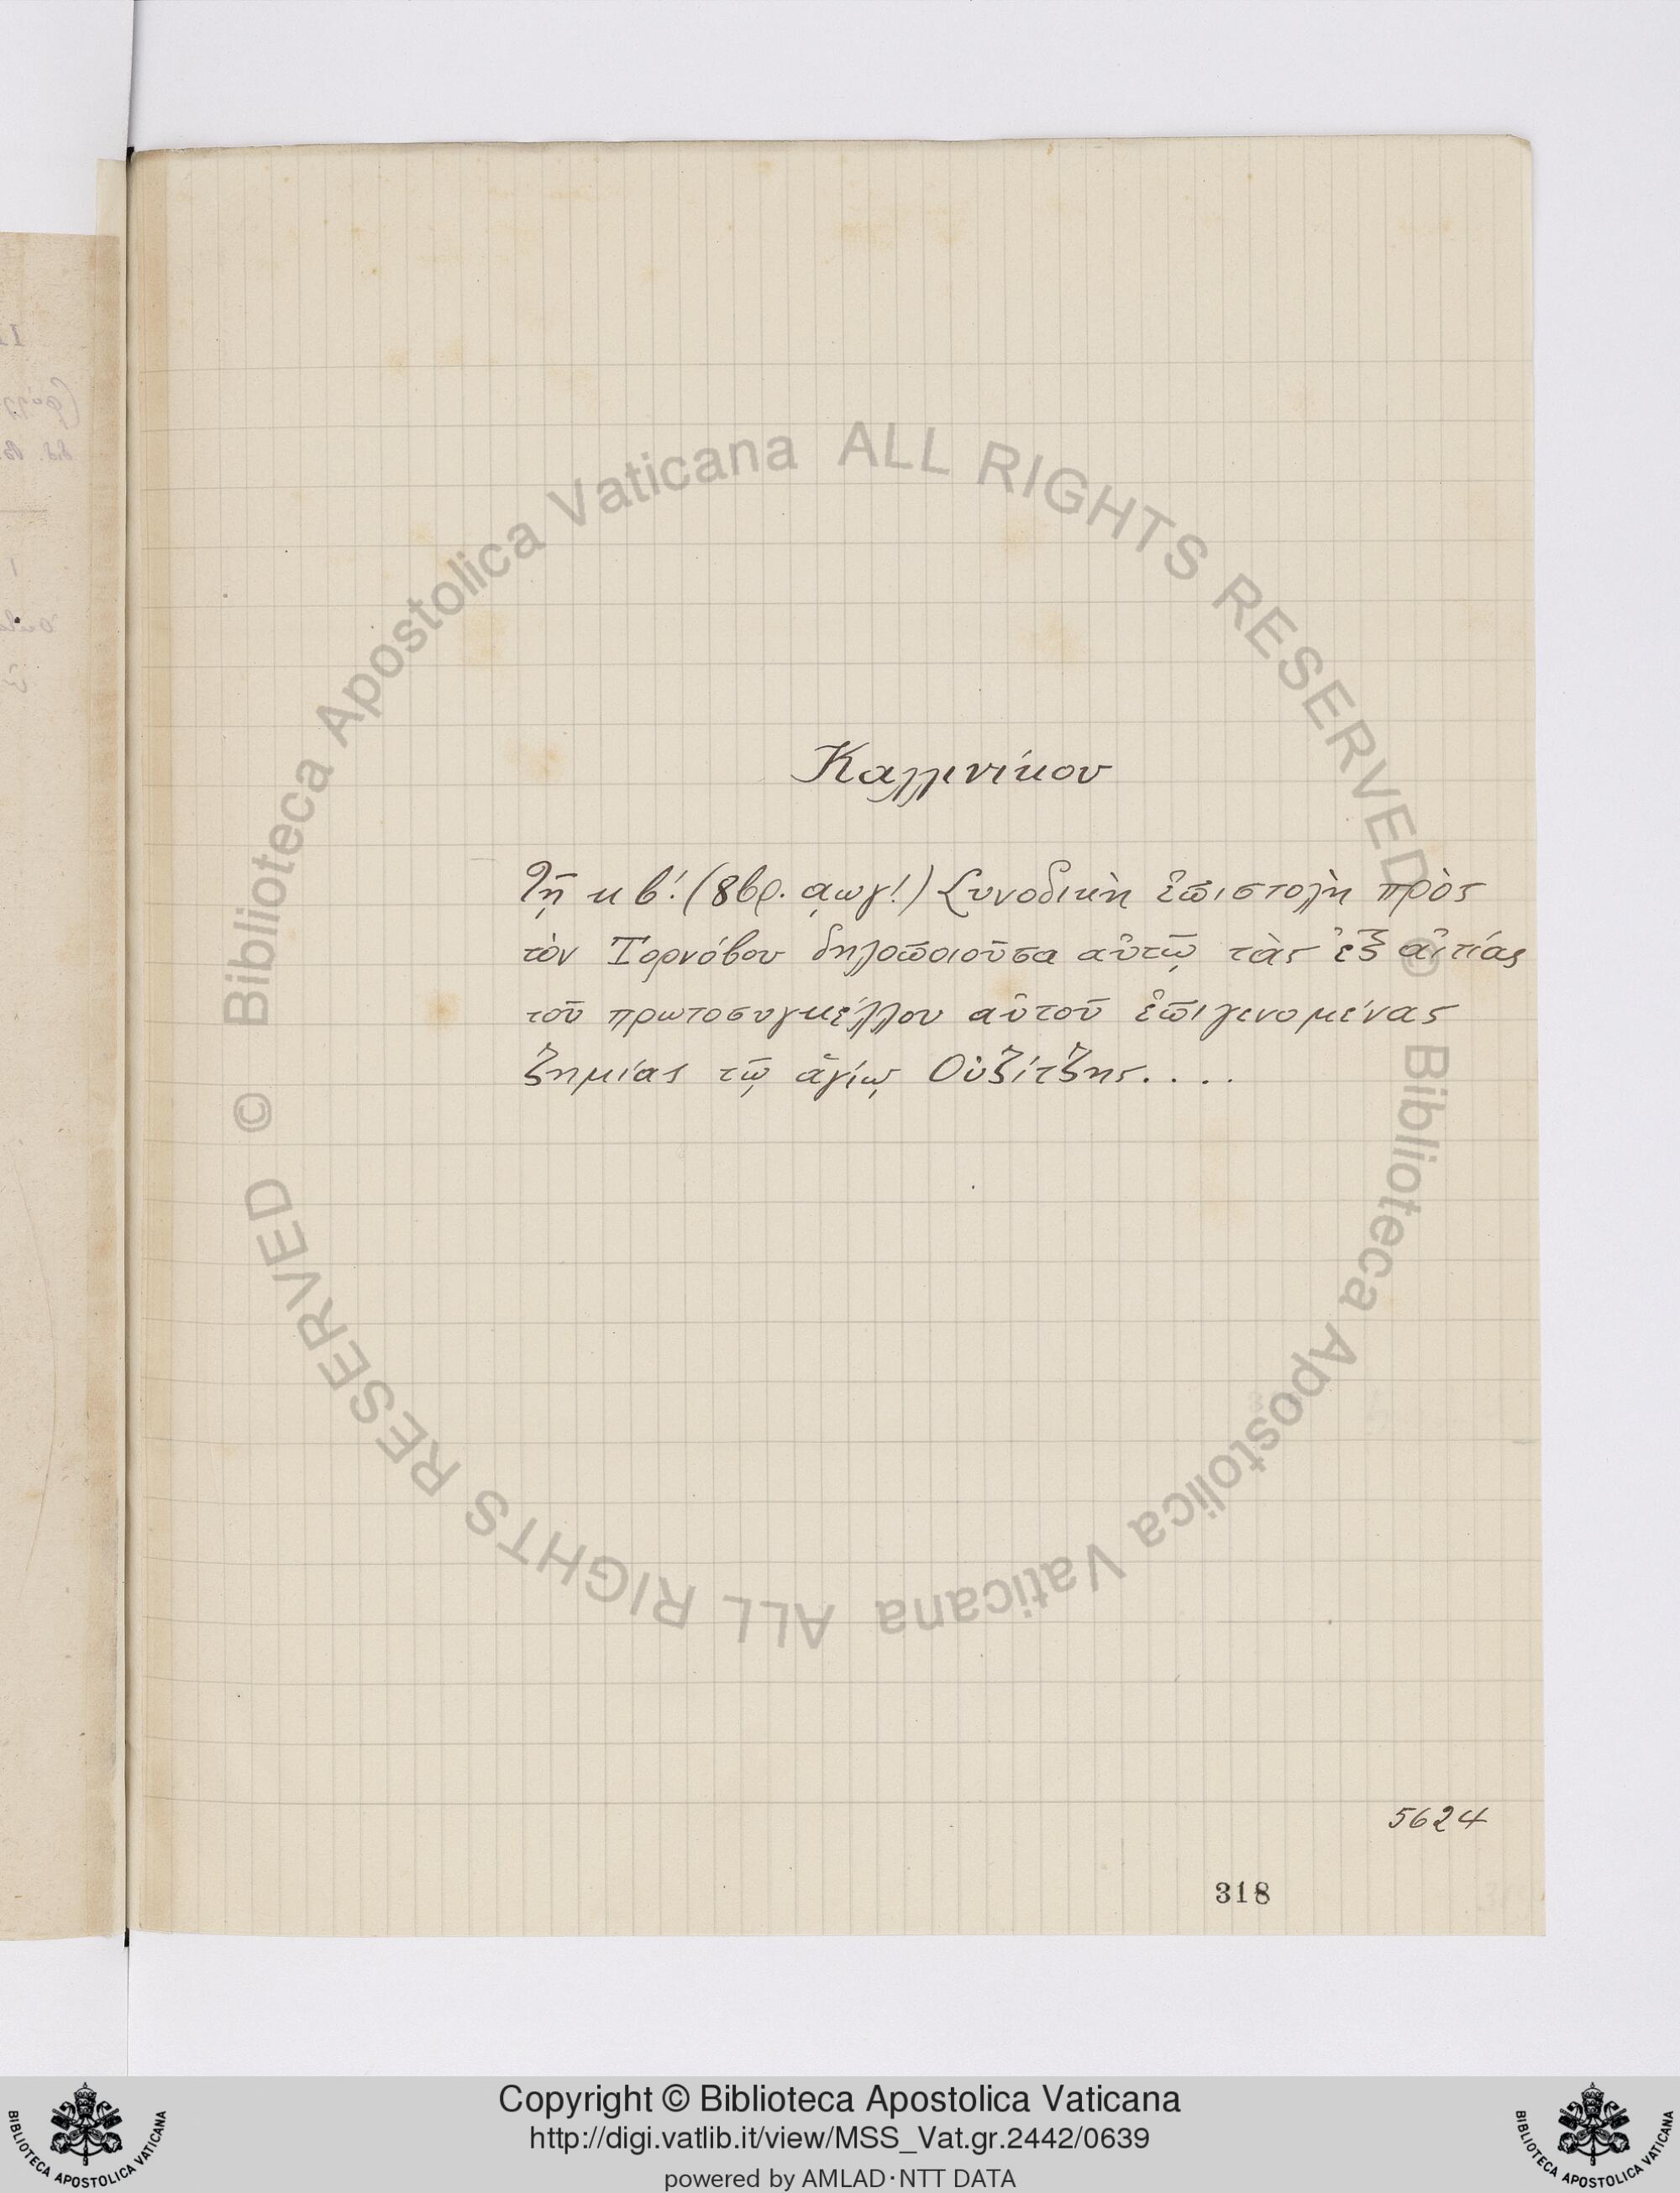 Καλλινίκου
Τῇ κβ'. (8βρ. αωγ'.) Συνοδικὴ ἐπιστολὴ πρὸς
τὸν Τορνόβου δηλοποιοῦσα αὐτῷ τὰς ἐξ αἰτίας
τοῦ πρωτοσυγκέλλου αὐτοῦ ἐπιγενομένας
ζημίας τῷ ἁγίῳ Οὐζίτζης. . . .
5624
318
© Biblioteca Apostolica Vaticana ALL RIGHTS RESERVED
© Biblioteca Apostolica Vaticana ALL RIGHTS RESERVED
Copyright © Biblioteca Apostolica Vaticana
http://digi.vatlib.it/view/MSS_Vat.gr.2442/0639
powered by AMLAD·NTT DATA
BIBLIOTECA APOSTOLICA VATICANA
BIBLIOTECA APOSTOLICA VATICANA